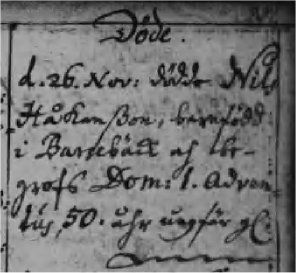 Döde.
d. 26. Nov: dödde Nils
Håkansson, barnfödd
i Barsebäck och be-
grofs Dom: 1. Adven-
tus, 50. åhr ungefär gl: